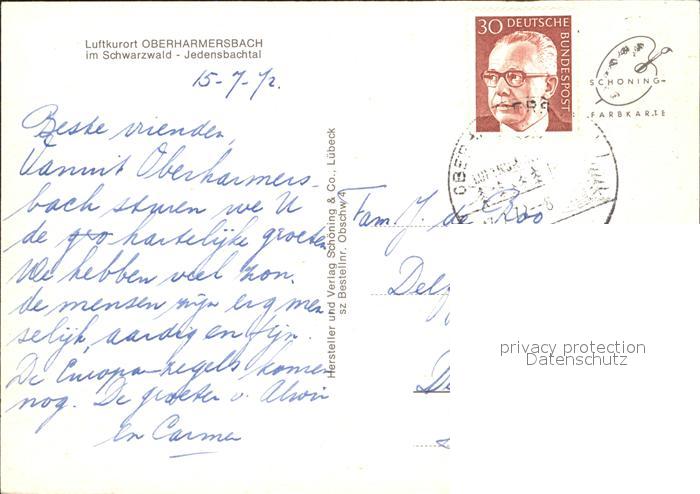 Luftkurort OBERHARMERSBACH
im Schwarzwald - Jedensbachtal
15-7-72.
Beste vrienden,
Vanuit Oberharmers-
bach sturen we U
de gro hartelijke groeten
We hebben veel zon.
de mensen zijn erg men
selijk, aardig en fijn.
De Europa-zegels komen
nog. De groeten v. Alwin
en Carmen
Hersteller und Verlag Schöning & Co., Lübeck
sz Bestellnr. Obschw 4
30 DEUTSCHE
BUNDESPOST
SCHÖNING-
FARBKARTE
Fam. J. de Roo
Delf
privacy protection
Datenschutz